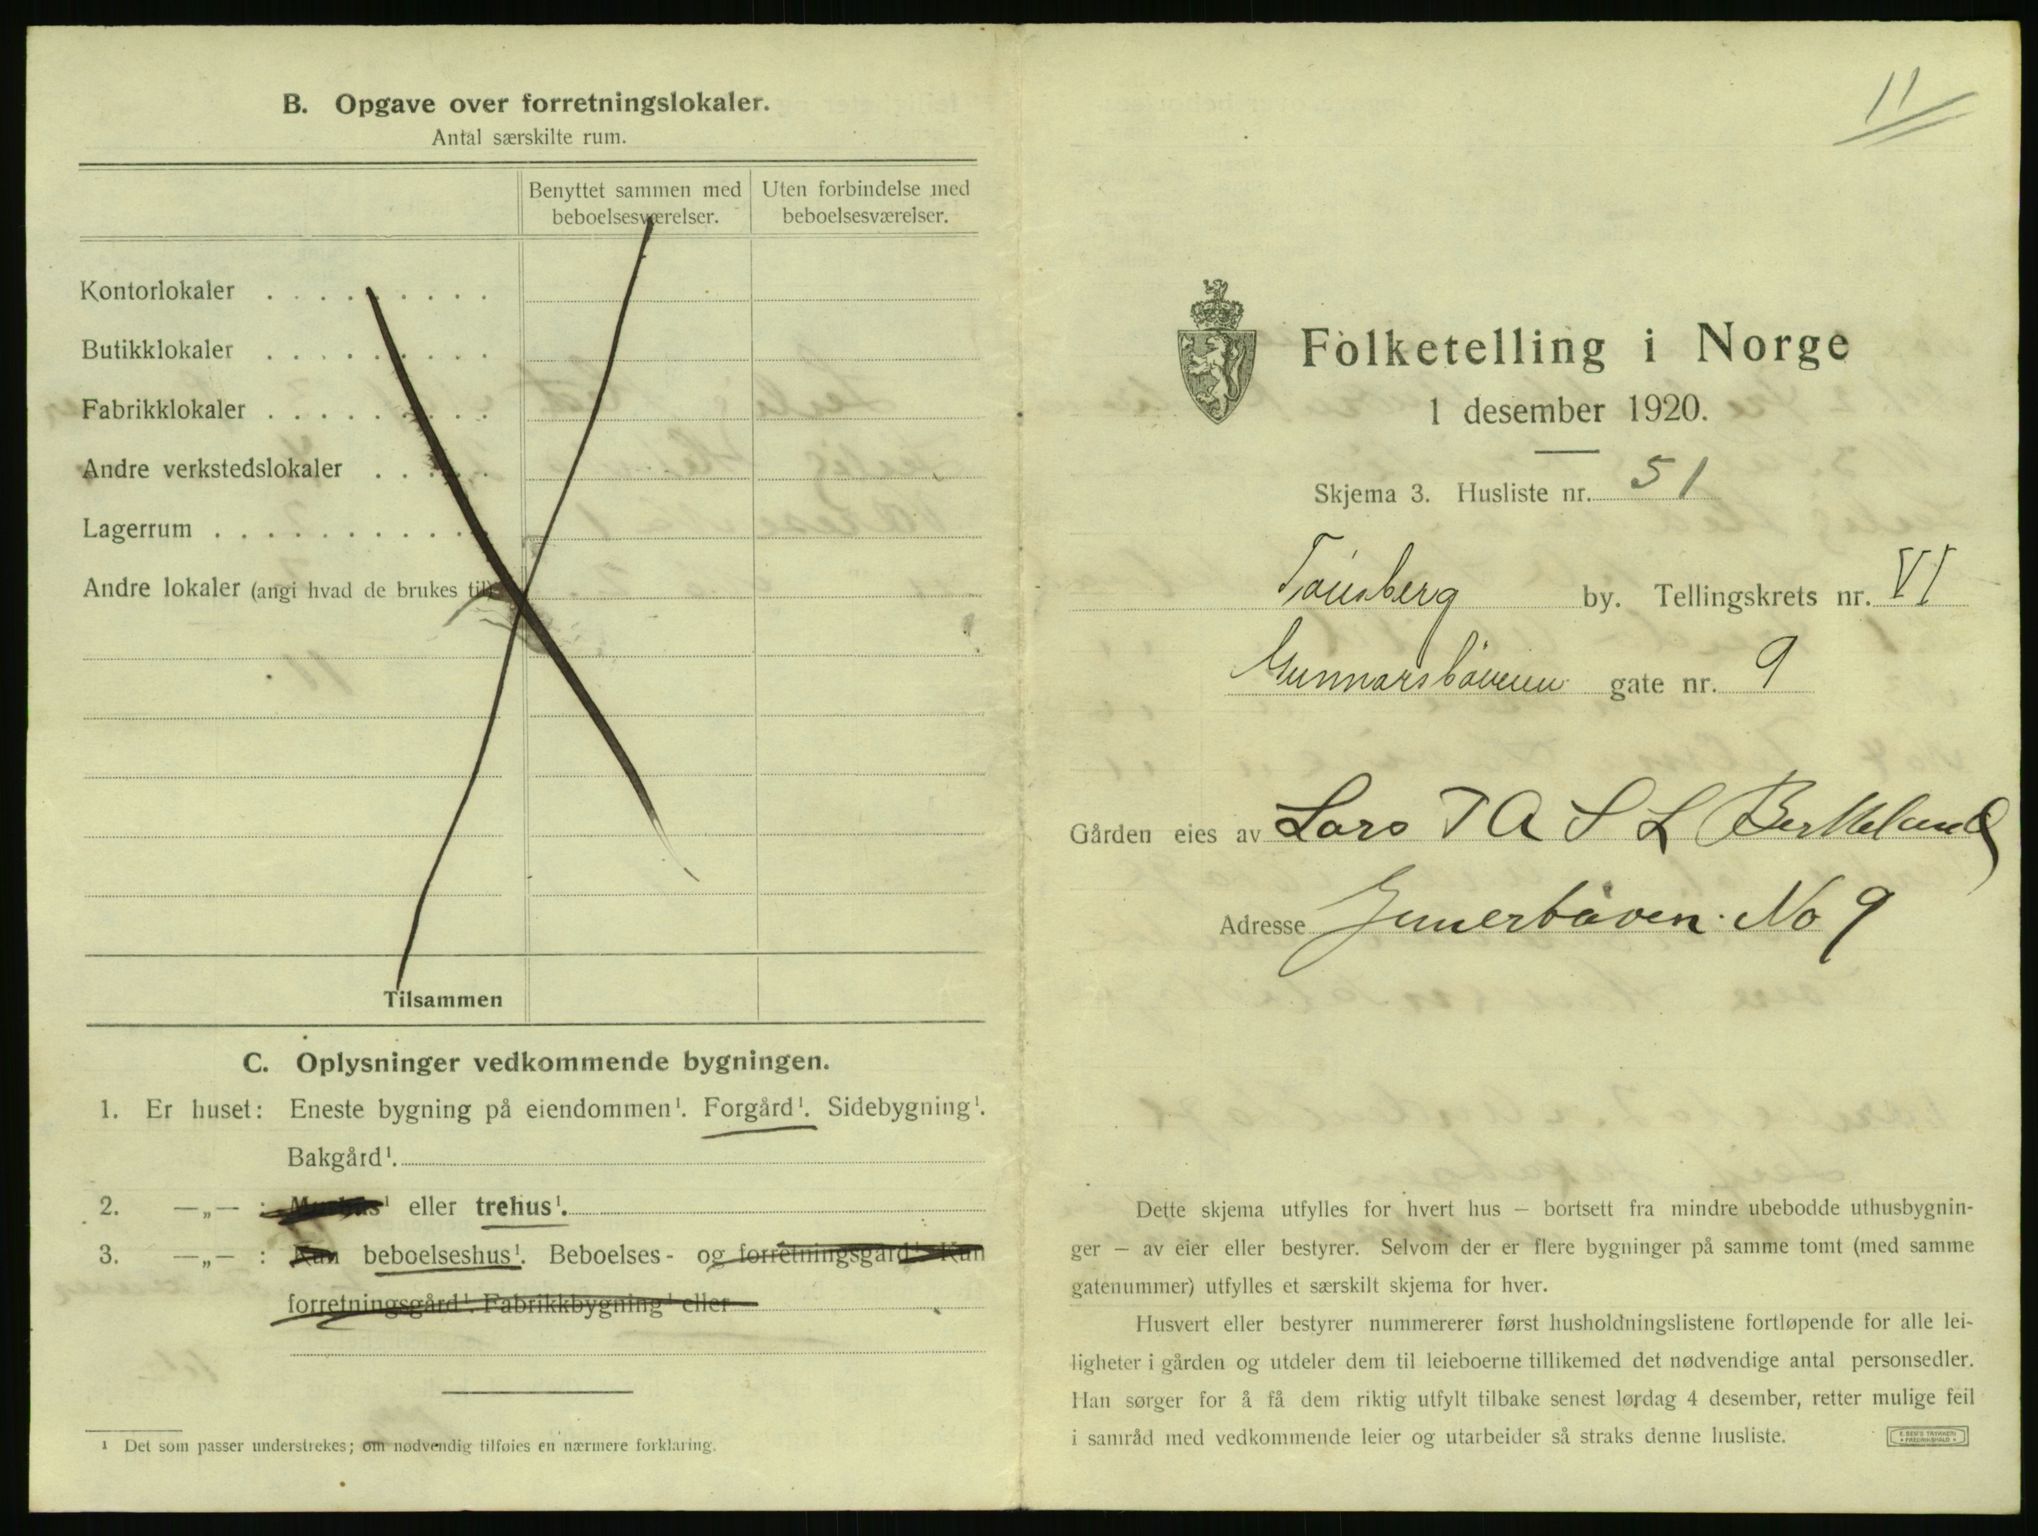 B. Opgave over forretningslokaler.
Antal særskilte rum.
Benyttet sammen med beboelsesværelser.
Uten forbindelse med beboelsesværelser.
Kontorlokaler . . . . . . . . .
Butikklokaler . . . . . . . . .
Fabrikklokaler . . . . . . . . .
Andre verkstedslokaler . . . . .
Lagerrum . . . . . . . . . . .
Andre lokaler (angi hvad de brukes til)
Tilsammen
C. Oplysninger vedkommende bygningen.
1. Er huset: Eneste bygning på eiendommen¹. Forgård¹. Sidebygning¹.
Bakgård¹.
2. —„— : Murhus¹ eller trehus¹.
3. —„— : Kun beboelseshus¹. Beboelses- og forretningsgård¹. Kun
forretningsgård¹. Fabrikkbygning¹ eller
¹ Det som passer understrekes; om nødvendig tilføies en nærmere forklaring.
11
Folketelling i Norge
1 desember 1920.
Skjema 3. Husliste nr. 51
Tønsberg by. Tellingskrets nr. VI
Gunnarsbøveien gate nr. 9
Gården eies av Lars T A S L Berkeland
Adresse Gunerbøven. No 9
Dette skjema utfylles for hvert hus – bortsett fra mindre ubebodde uthusbygnin-
ger – av eier eller bestyrer. Selvom der er flere bygninger på samme tomt (med samme
gatenummer) utfylles et særskilt skjema for hver.
Husvert eller bestyrer nummererer først husholdningslistene fortløpende for alle lei-
ligheter i gården og utdeler dem til leieboerne tillikemed det nødvendige antal personsedler.
Han sørger for å få dem riktig utfylt tilbake senest lørdag 4 desember, retter mulige feil
i samråd med vedkommende leier og utarbeider så straks denne husliste.